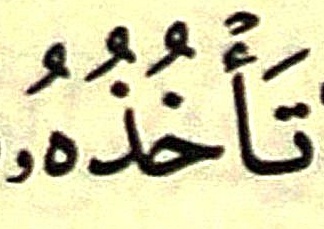 تَأۡخُذُهُۥ